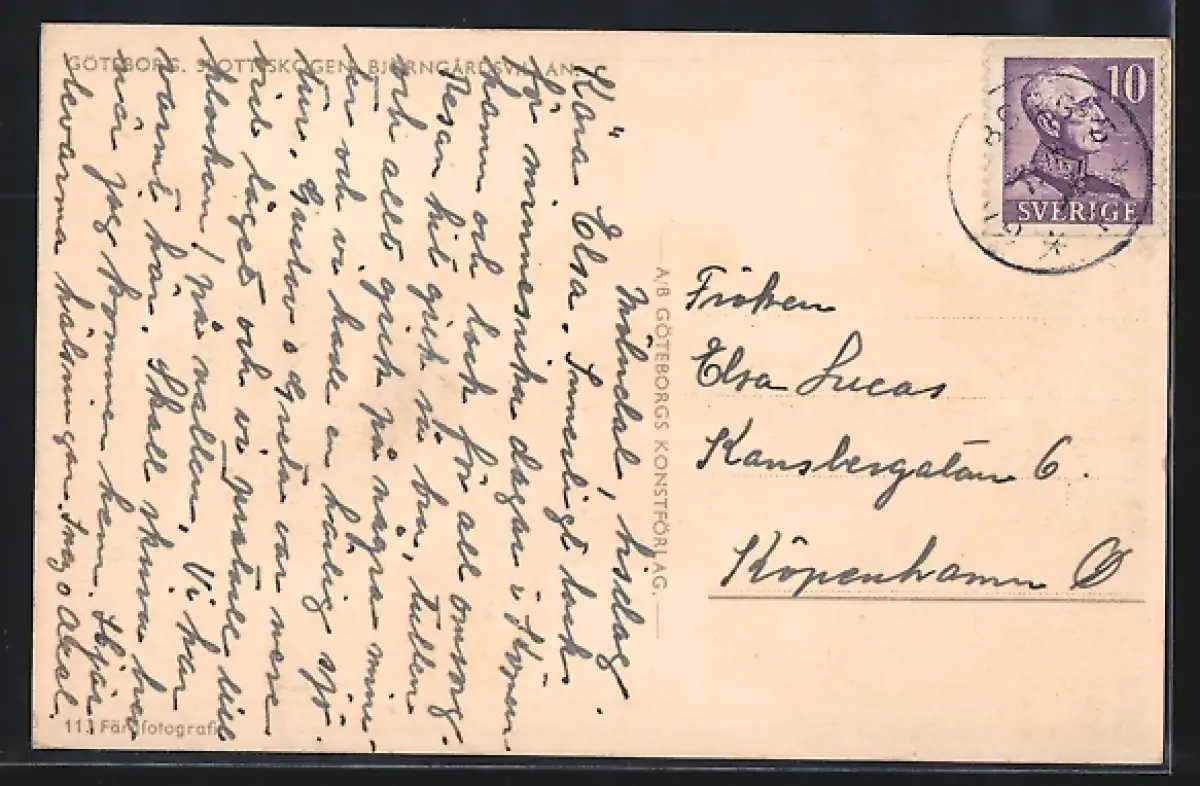 GÖTEBORG. SLOTTSSKOGEN. BJÖRNGÅRDSVILLAN.
Mölndal, tisdag.
Kära Elsa. Innerligt tack
för minnesrika dagar i Köpen-
hamn och tack för all omsorg.
Resan hit gick så bra, tullen
och allt gick på några minu-
ter och vi hade en härlig sjö-
tur. Gustav o Greta var nere
vid tåget och vi pratade till
klockan / på natten. Vi har
varmt här. Skall skriva
när jag kommer hem. Hjär-
tevarma hälsningar. Ing o Axel.
113 Färgfotografi
A/B GÖTEBORGS KONSTFÖRLAG.
10
SVERIGE
Fröken
Elsa Lucas
Kansbergatan 6.
Köpenhamn Ø